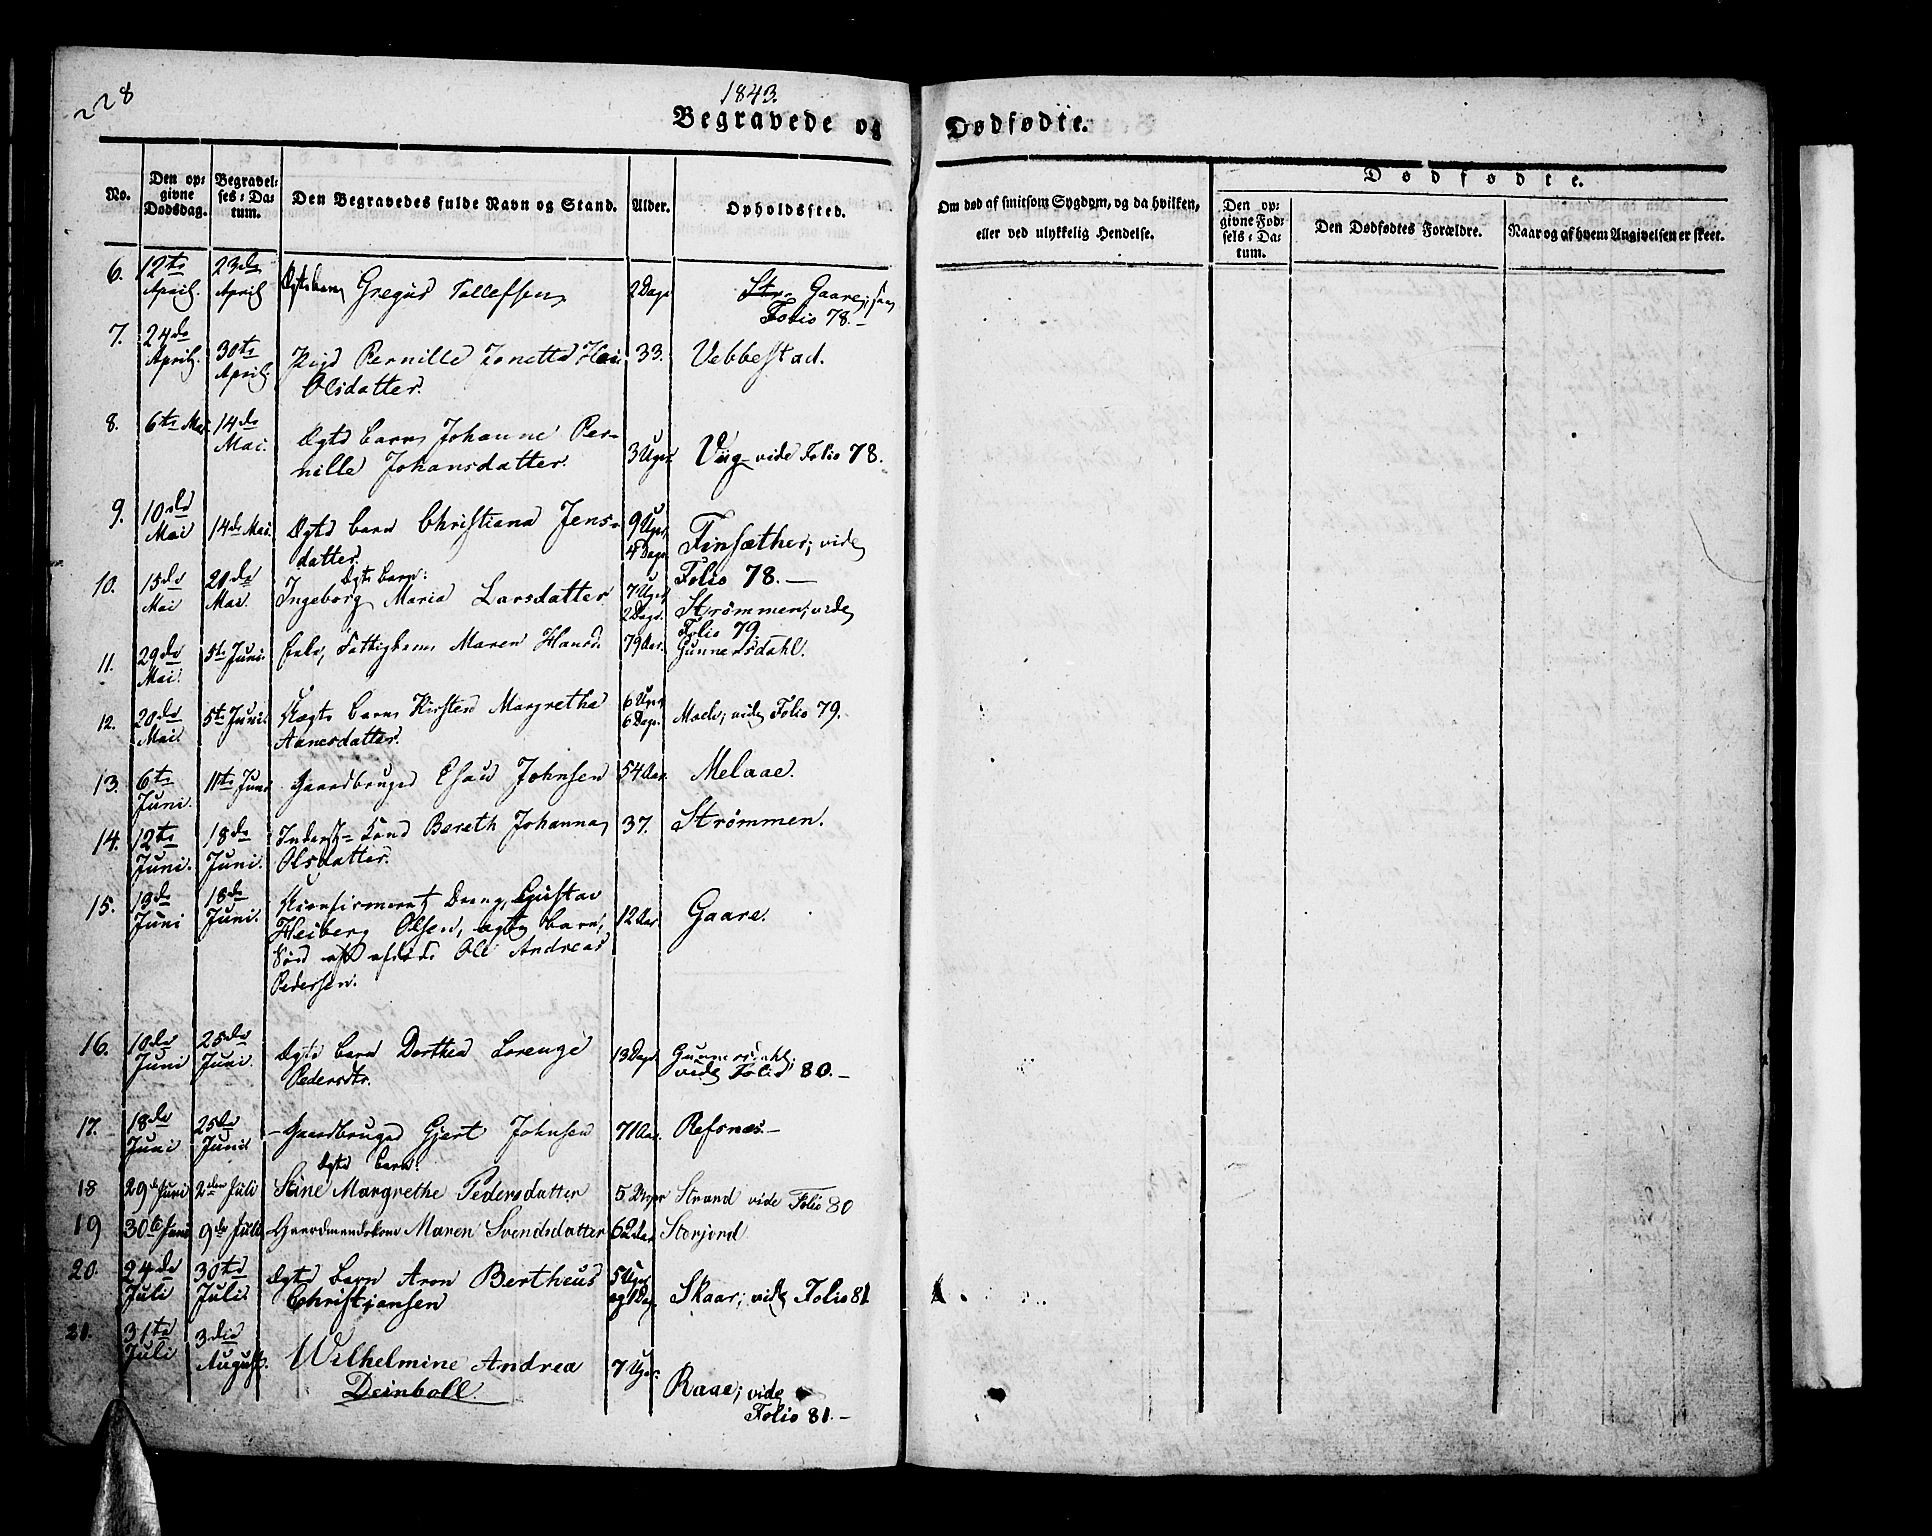 228
1843.
Begravede og Dødfødte.
No.
Den opgivne Dødsdag.
Begravelses-Datum.
Den Begravedes fulde Navn og Stand.
Alder.
Opholdssted.
Om død af smitsom Sygdom, og da hvilken,
eller ved ulykkelig Hendelse.
Dødfødte.
Den opgivne Fødsels-Datum.
Den Dødfødtes Forældre.
Naar og af hvem Angivelsen er skeet.
6. 12te April. 23de April Gregus Tollefsen 2 Dage Gaare,
Folio 78.
7. 24de April. 30te April. Pernille 33. Vebbestad.
Olsdatter.
8. 6te Mai 14de Mai. Ægte barn Johanne Per-
nille Johansdatter. 3 Uger Viig vide Folio 78.
9. 10de Mai 14de Mai. Ægte barn Christiana Jens-
datter. 9 Uger 4 Dage Finsæther; vide
Folio 78.
10. 15de Mai 20de Mai. Ægte barn:
Ingeborg Maria Larsdatter 7 Uger 2 Dage. Strømmen; vide
Folio 79.
11. 29de Mai. 5te Juni. Maren Hansd. 79 Aar. Gunnersdahl.
12. 20de Mai. 5te Juni. Uægte barn Kirsten Margretha
Aanesdatter. 6 Uger 6 Dage. vide Folio 79.
13. 6te Juni. 11te Juni Gaardbruger Esau Johnsen 54 Aar. Melaae.
14. 12te Juni. 18de Juni. Bereth Johanna 37. Strømmen.
Olsdatter.
15. 13de Juni 18de Juni. Ukonfirmeret Dreng, Gustav
Heiberg Olsen, ægte barn, 12 Aar. Gaare.
Ole Andreas
Pedersen.
16. 10de Juni 25de Juni. Ægte barn Dorthea Lorense
Pedersdtr. 13 Dage Gunnersdahl;
vide Folio 80.
17. 18de Juni 25de Juni. Gaardbruger Gjert Johnsen 71 Aar. Refsnæs.
Ægte barn:
18 29de Juni 2den Juli Stine Margrethe Pedersdatter 5 Uger Strand vide Folio 80
19 30te Juni 9de Juli Gaardmandskone Maren Svendsdatter 62 Aar Storjord
20. 24de Juli 30te Juli. Ægte barn Aron Bertheus
Christjansen 5 Uger og 1 Dag Skaar; vide Folio 81
21. 31te Juli 3die August. Wilhelmine Andrea
Deinboll. 7 Uger. Raae; vide
Folio 81.